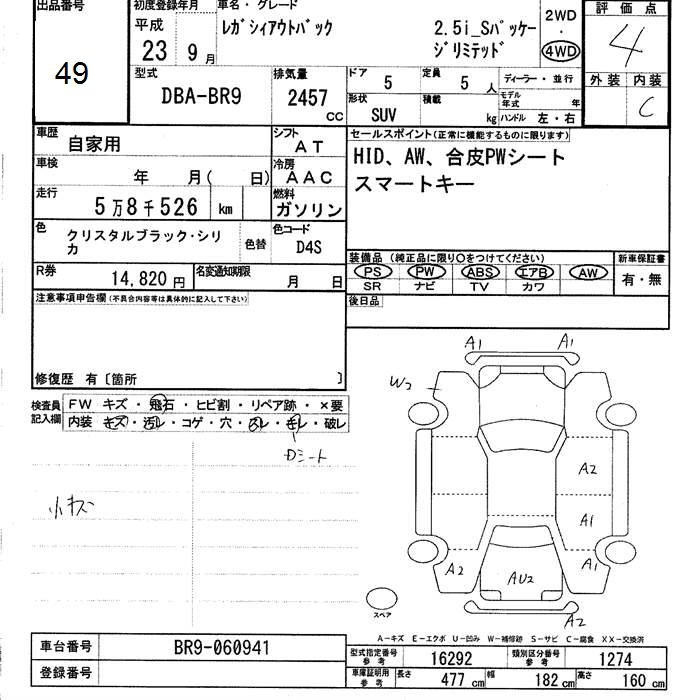 出品番号
49
初度登録年月
平成
23 9 月
車名・グレード
レガシィアウトバック 2.5i_Sパッケー
ジリミテッド
2WD
・
4WD
評価点
4
外装 内装
C
型式
DBA-BR9
排気量
2457
CC
ドア
5
定員
5 人
形状
SUV
積載
kg
ディーラー・並行
モデル
年式 年
ハンドル 左・右
車歴
自家用
シフト
AT
車検
年 月( 日)
冷房
AAC
走行
5万8千526 km
燃料
ガソリン
色
クリスタルブラック・シリ
カ
色替
色コード
D4S
R券
14,820 円
名変通知期限
月 日
セールスポイント(正常に機能するものに限ります)
HID、AW、合皮PWシート
スマートキー
装備品(純正品に限り○をつけてください)
PS PW ABS エアB AW
SR ナビ TV カワ
新車保証書
有・無
後日品
注意事項申告欄(不具合内容等は具体的に記入して下さい)
修復歴 有〔箇所 〕
検査員
記入欄
FW キズ・飛石・ヒビ割・リペア跡・×要
内装 キズ・汚レ・コゲ・穴・スレ・キレ・破レ
Dシート
小キズ
A1 A1
W2
A2
A1
A2 A1
AU2
A2
スペア
A-キズ E-エクボ U-凹み W-補修跡 S-サビ C-腐食 XX-交換済
車台番号
BR9-060941
登録番号
型式指定番号
参考
16292
類別区分番号
参考
1274
車庫証明用
参考
長さ
477 cm
幅
182 cm
高さ
160 cm